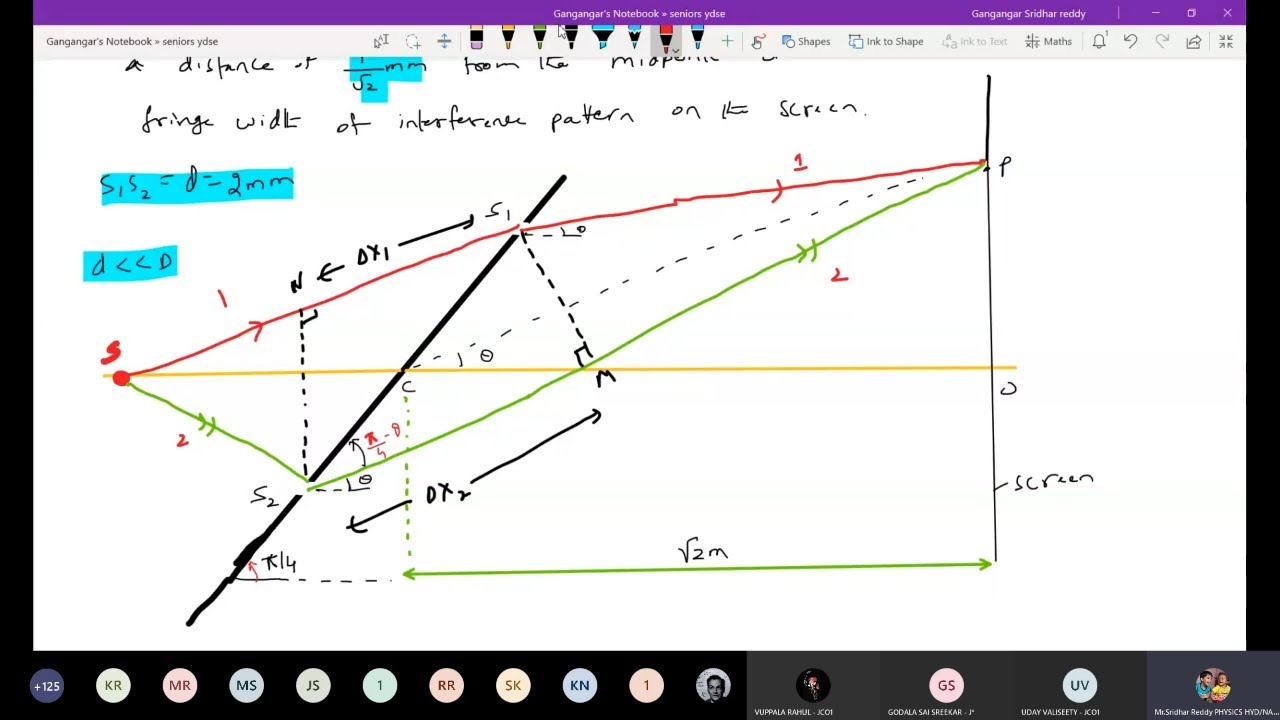 Gangangar's Notebook » seniors ydse
Gangangar Sridhar reddy
Gangangar's Notebook » seniors ydse
Shapes
Ink to Shape
Ink to Text
Maths
a distance of 1/√2 mm from the
fringe width of interference pattern on the screen.
S1S2 = d = 2mm
d << D
1
P
S1
θ
Δx1
N
2
1
S
θ
C
M
O
2
π/4 - θ
θ
S2
Δx2
screen
π/4
√2 m
+125
KR
MR
MS
JS
1
RR
SK
KN
1
GS
UV
VUPPALA RAHUL - JCO1
GODALA SAI SREEKAR - J*
UDAY VALISEETY - JCO1
Mr.Sridhar Reddy PHYSICS HYD/NA...